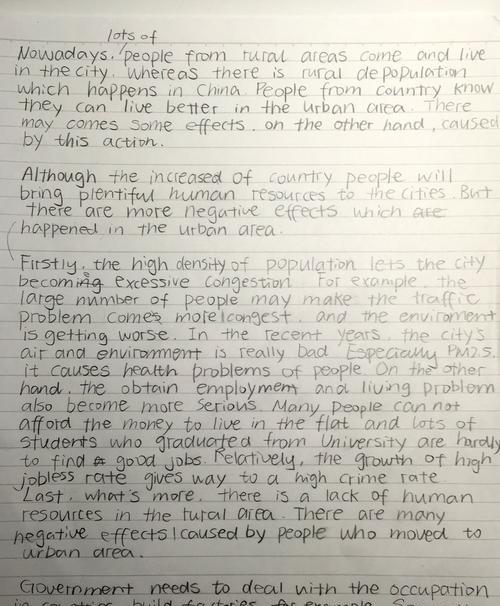 lots of
Nowadays, people from rural areas come and live
in the city. whereas there is rural depopulation
which happens in China. People from country know
they can live better in the urban area. There
may comes some effects, on the other hand, caused
by this action.
Although the increased of country people will
bring plentiful human resources to the cities. But
there are more negative effects which are
happened in the urban area.
Firstly, the high density of population lets the city
becoming excessive congestion. For example, the
large number of people may make the traffic
problem comes more congest. and the enviroment
is getting worse. In the recent years, the city's
air and environment is really bad. Especially PM2.5.
it causes health problems of people. On the other
hand, the obtain employment and living problem
also become more serious. Many people can not
afford the money to live in the flat and lots of
students who graduated from University are hardly
to find a good jobs. Relatively, the growth of high
jobless rate gives way to a high crime rate.
Last, what's more, there is a lack of human
resources in the rural area. There are many
negative effects caused by people who moved to
urban area.
Government needs to deal with the occupation